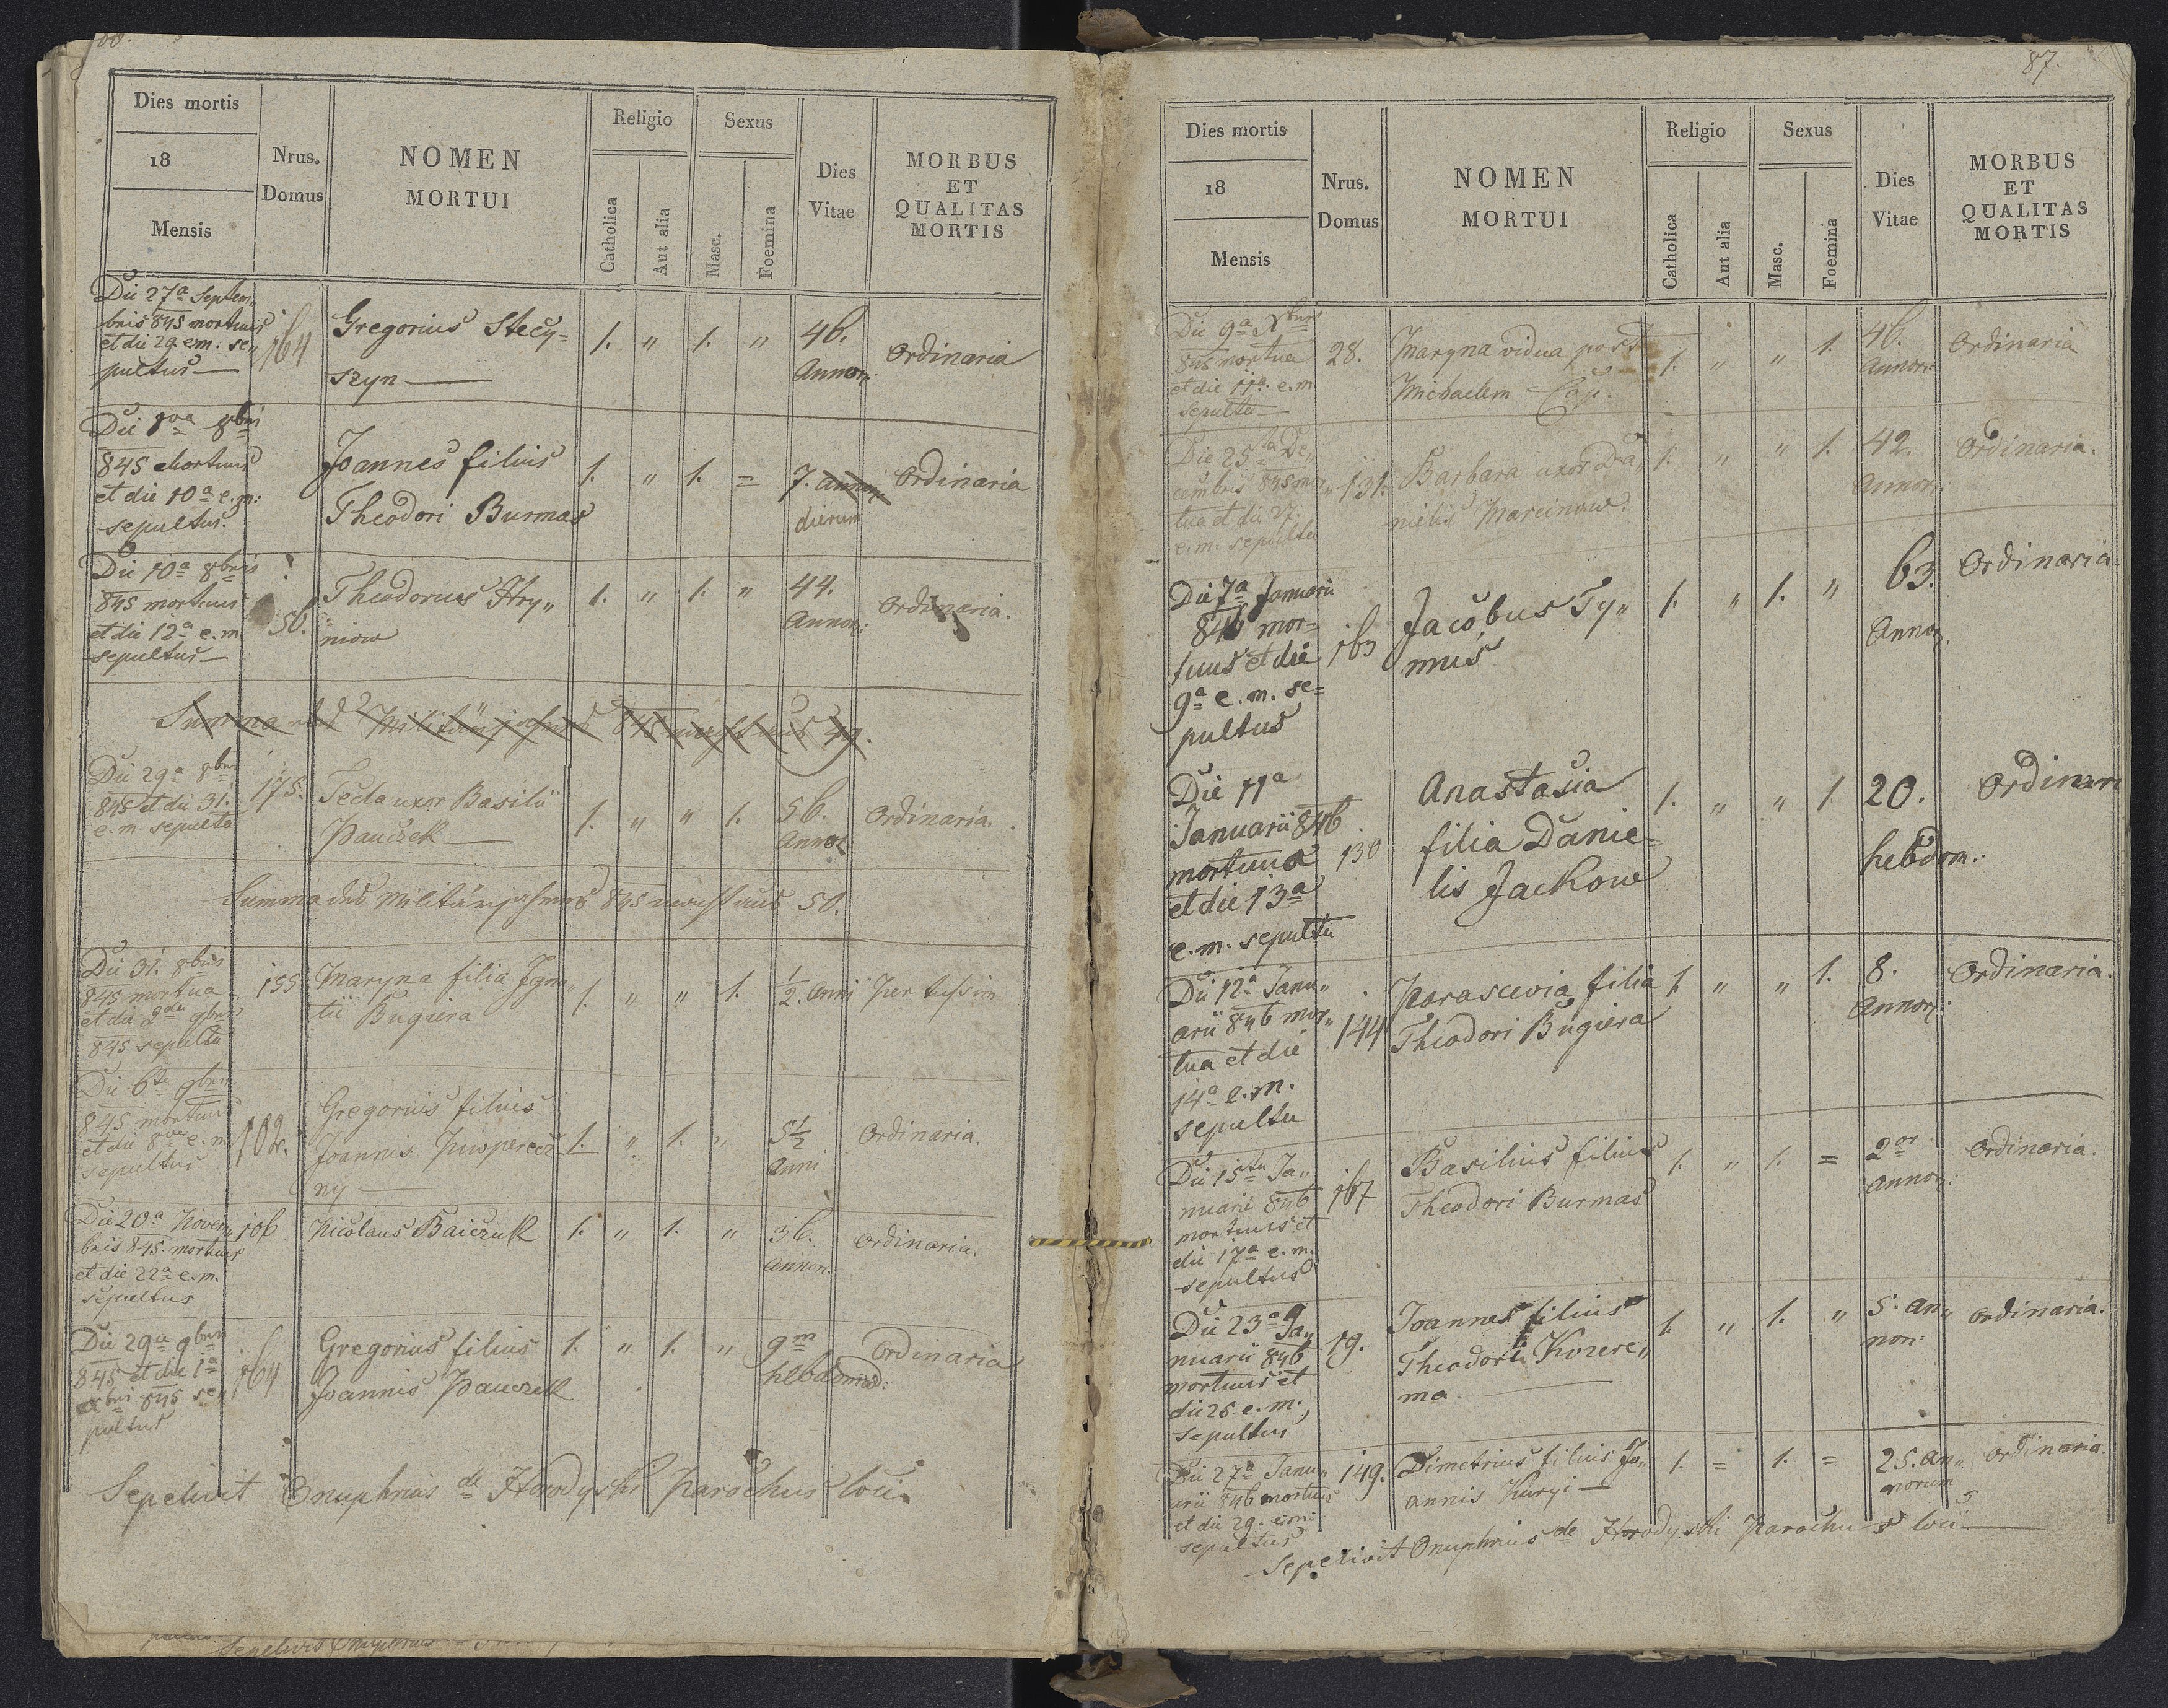 Dies mortis
18
Mensis
Nrus.
Domus
NOMEN
MORTUI
Religio
Catholica
Aut alia
Sexus
Masc.
Foemina
Dies
Vitae
MORBUS
ET
QUALITAS
MORTIS
Die 27a Septem„
bris 845 mortuus
et die 29 e.m: se„
pultus —
164
Gregorius Stecy=
szyn —
1. „ 1. „
46.
Annor:
Ordinaria
Die 8va 8bris
845 Mortuus
et die 10a e.m:
sepultus.
Joannes filius
Theodori Burmas
1. „ 1. =
7. Annor:
dierum
Ordinaria
Die 10a 8bris
845 mortuus
et die 12a e.m.
sepultus —
50.
Theodorus Hry„
niow
1. „ 1. „
44.
Annor:
Ordinaria.
Summa des Militärjahres 845 macht aus 49.
Die 29a 8bris
845 et die 31.
e.m. sepulta
175.
Tecla uxor Basilii
Pauczek —
1. „ „ 1.
56.
Annor
Ordinaria.
Summa des Militärjahres 845 macht aus 50.
Die 31. 8bris
845 mortua
et die 2da 9bris
845 sepulta
155
Maryna filia Igna
tii Bugiera
1. „ „ 1.
1/2. anni
Per tussim
Die 6ta 9bris
845 mortuus
et die 8va e.m.
sepultus
102.
Gregorius filius
Joannis
ny —
1. „ 1. „
5 1/2
Anni
Ordinaria.
Die 20a Novem„
bris 845. mortuus
et die 22a e.m.
sepultus
106
Nicolaus Baiczuk
1. „ 1. „
36.
Annor.
Ordinaria.
Die 29a 9bris
845 et die 1a
Xbris 845 se„
pultus
164
Gregorius filius
Joannis Pauczek
1. „ 1. „
9m
hebdomad:
Ordinaria
Sepelivit Onuphrius de Horodyski Parochus loci.
87.
Dies mortis
18
Mensis
Nrus.
Domus
NOMEN
MORTUI
Religio
Catholica
Aut alia
Sexus
Masc.
Foemina
Dies
Vitae
MORBUS
ET
QUALITAS
MORTIS
Die 9a Xbris
845 mortua
et die 11a. e.m.
sepulta —
28.
Maryna vidua post
Michaelem
1. „ „ 1.
46.
Annor:
Ordinaria
Die 25ta De„
cembris 845 mor„
tua et die 27.
e.m. sepulta
131.
Barbara uxor Da„
nielis Marcinow
1. „ „ 1.
42.
Annor:
Ordinaria.
Die 7a Januarii
846 mor=
tuus et die
9a e.m. se=
pultus
163
Jacobus Ty„
mus
1. „ 1. „
63.
Annor.
Ordinaria.
Die 11a
Januarii 846
mortuua
et die 13a
e.m. sepulta
130
Anastasia
filia Danie=
lis Jackow
1. „ „ 1
20.
hebdom:
Ordinari
Die 12a Janu„
arii 846 mor„
tua et die
14a e.m.
sepulta
144
Parascevia filia
Theodori Bugiera
1. „ „ 1.
8.
Annor:
Ordinaria.
Die 15ta Ja„
nuarii 846
mortuus et
die 17a e.m.
sepultus
167
Basilius filius
Theodori Burmas
1. „ 1. =
2or
annor:
Ordinaria.
Die 23a Ja„
nuarii 846
mortuus et
die 25. e.m.
sepultus
19.
Joannes filius
Theodori Kozere„
ma. —
1. „ 1. „
5. an„
nor:
Ordinaria.
Die 27a Janu„
arii 846 mortuus
et die 29. e.m:
sepultus
149.
Dimetrius filius Jo„
annis Kuryi —
1. = 1. =
25. an„
norum
Ordinaria.
Sepelivit Onuphrius de Horodyski Parochus loci —
Sepelivit Onuphrius